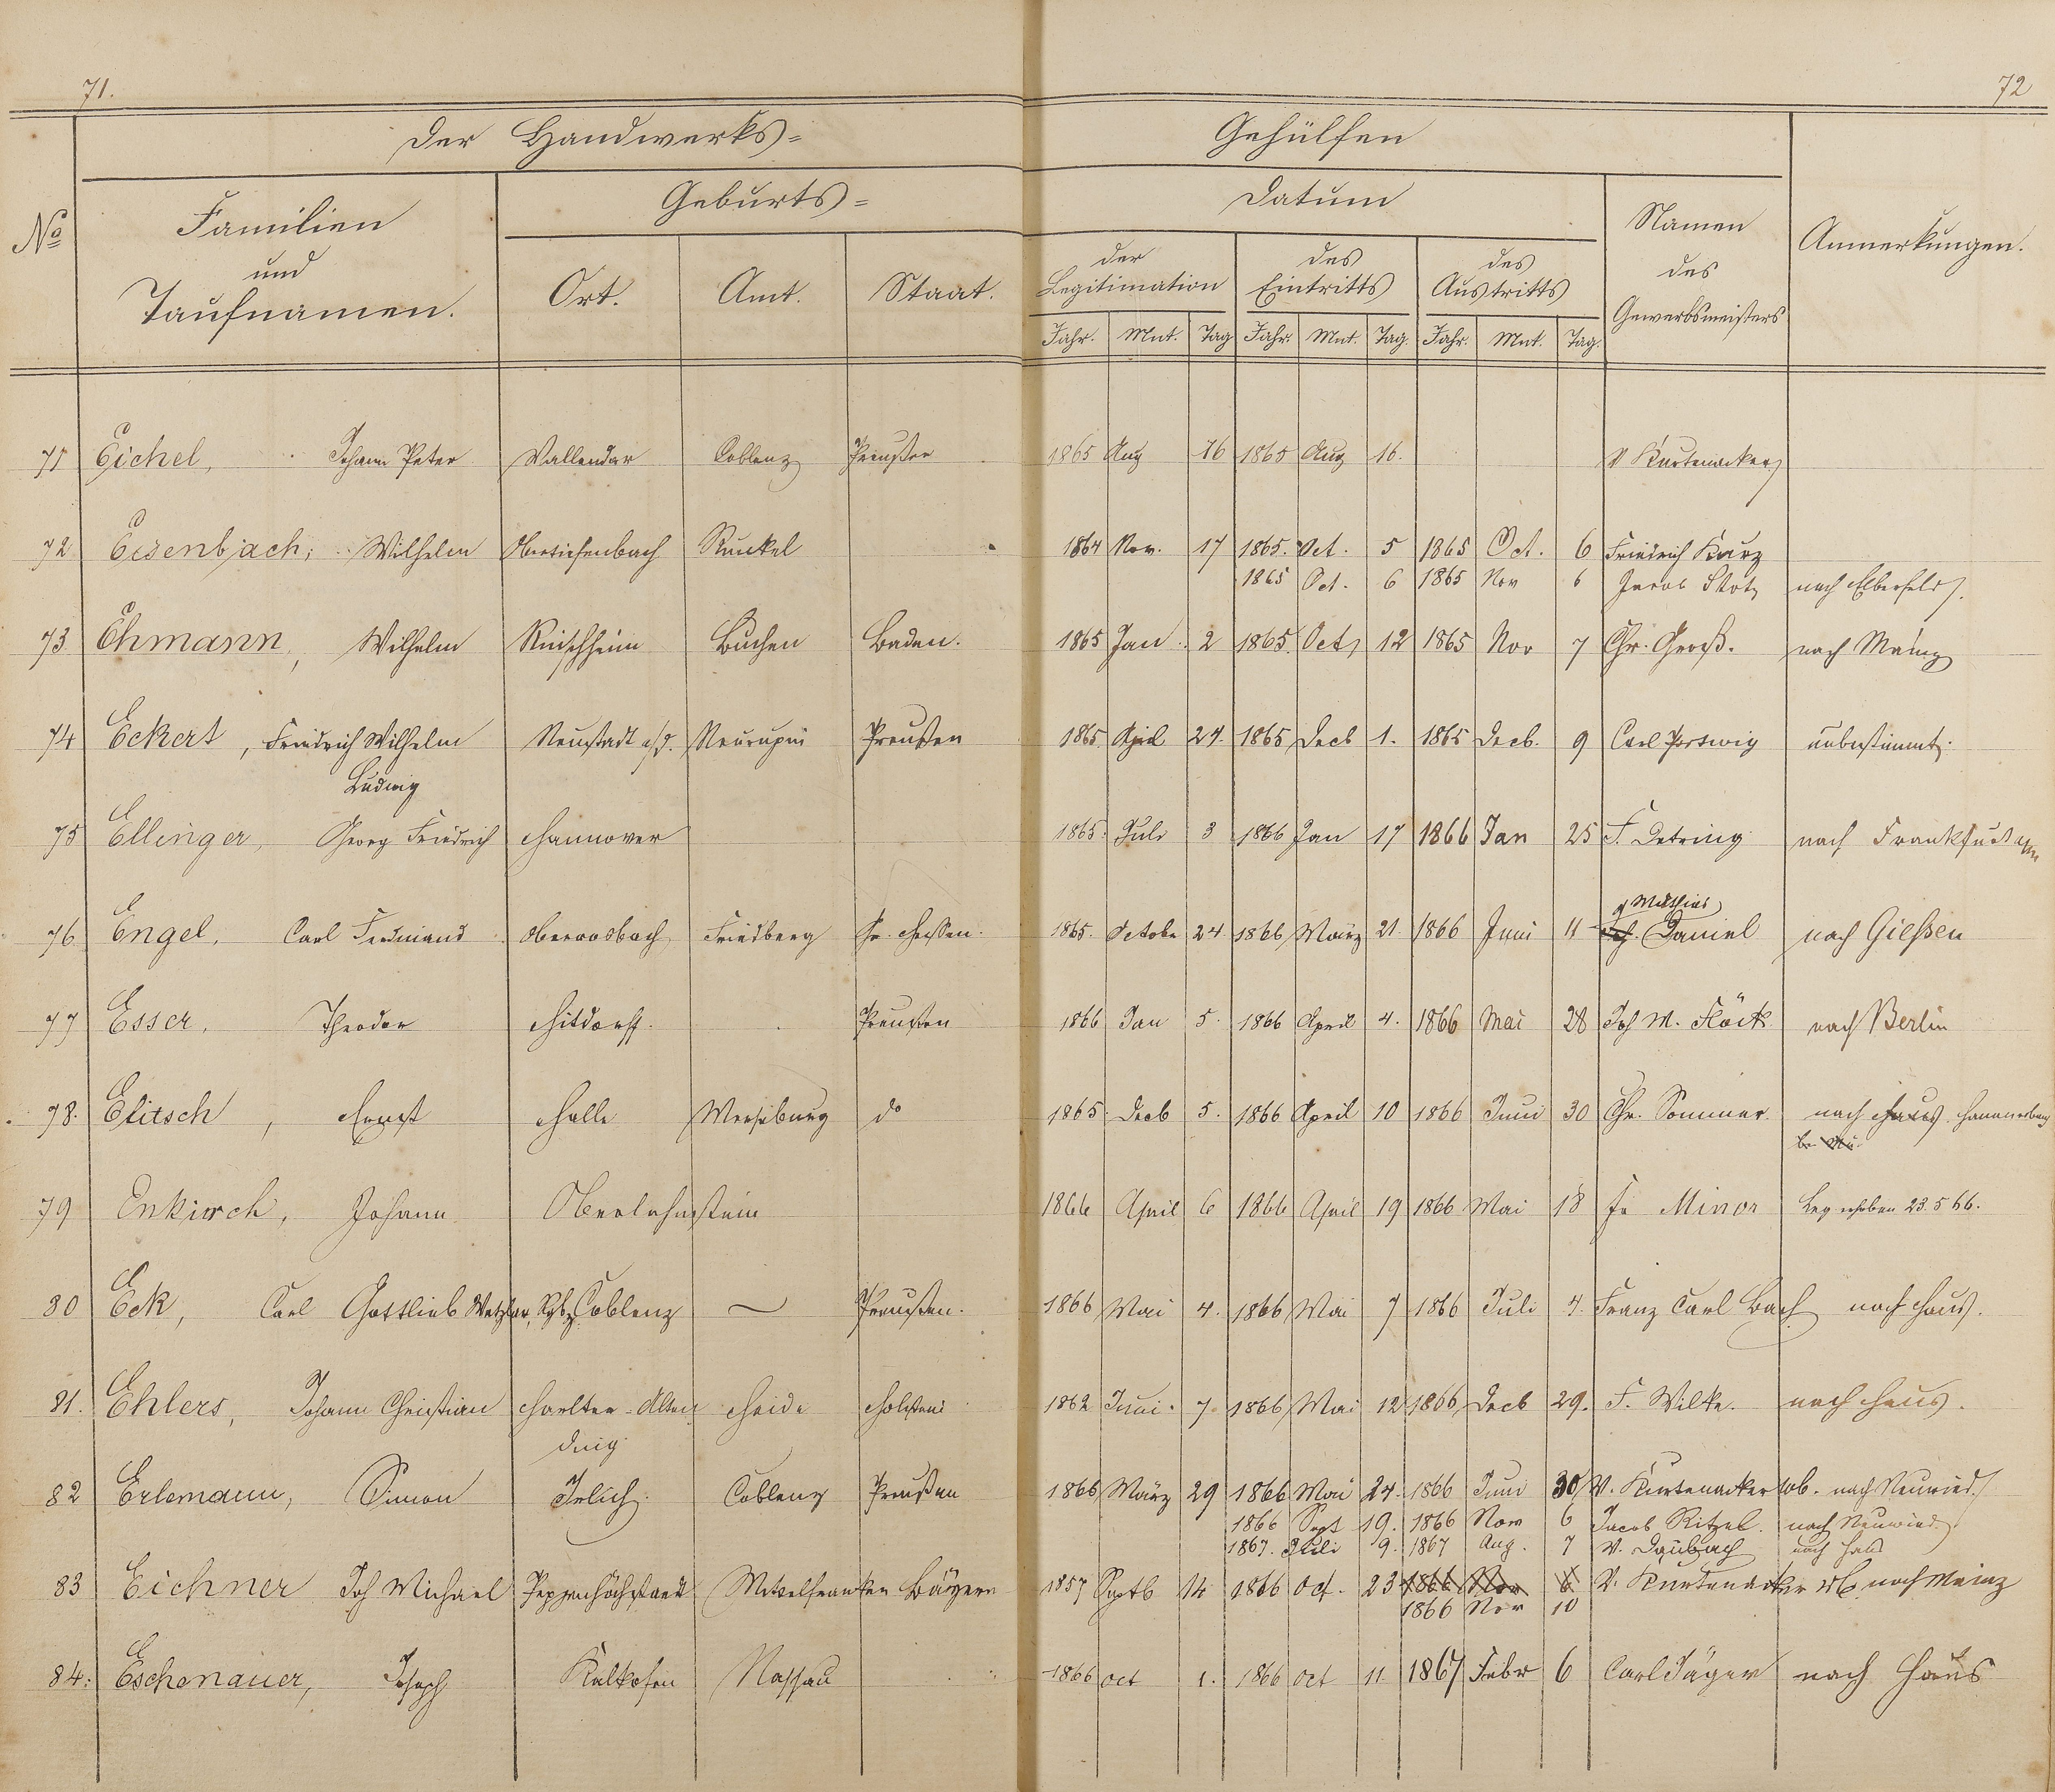 71.
72
Der Handwerks= Gehülfen
No
Familien und Taufnamen.
Geburts=
Ort. Amt. Staat.
Datum
der Legitimation
des Eintritts
des Austritts
Jahr. Mnt. Tag Jahr. Mnt. Tag. Jahr. Mnt. Tag.
Namen des Gewerbsmeisters
Anmerkungen.
71 Eichel, Johann Peter Vallendar Coblenz Preußen 1865 Aug 16 1865 Aug 16. V Kurtenacker
72 Eisenbach, Wilhelm Obertiefenbach Runkel 1864 Nov. 17 1865. Oct. 5 1865 Oct. 6 Friedrich Kurz
1865 Oct. 6 1865 Nov 6 Jacob Stotz nach Elberfeld.
73 Ehmann, Wilhelm Rinschheim Buchen Baden. 1865 Jan. 2 1865. Oct 12 1865 Nov 7 Chr. Groß. nach Mainz
74 Eckert, Friedrich Wilhelm Neustadt a/d. Neurupin Preußen 1865. April 24. 1865 Decb 1. 1865 Decb. 9 Carl Portwig unbestimmt.
Ludwig
75 Ellinger, Georg Friedrich Hannover 1865. Juli 3 1866 Jan 17 1866 Jan 25 F. Detring nach Frankfurt a/m
Mathias
76 Engel, Carl Ferdinand Oberrosbach Friedberg Gr. Hessen. 1865. Octobr 24 1866 März 21. 1866 Juni 11 Daniel nach Gießen
77 Esser, Theodor Hitdorff. Preußen 1866 Jan 5. 1866 April 4. 1866 Mai 28 Joh M. Flöck nach Berlin
78. Elitsch, Ernst Halle Merseburg do 1865. Decb 5. 1866 April 10 1866 Juni 30 Chr. Sommer. nach Haus.
79 Enkirch, Johann Oberlahnstein 1866 April 6 1866 April 19 1866 Mai 18 Fr Minor Leg erhoben 23.5 66.
80 Eck, Carl Gottlieb Wetzlar, Rgbz Coblenz — Preußen. 1866 Mai 4. 1866 Mai 7 1866 Juli 4. Franz Carl Bach nach Haus.
81. Ehlers, Johann Christian Heide Holstein 1862 Juni. 7. 1866 Mai 12 1866 Decb 29. F. Wilke. nach Haus.
82 Erlemann, Simon Irlich. Coblenz Preußen 1866 März 29 1866 Mai 24. 1866 Juni 30 V. Kurtenacker Wb. nach Neuwied.
1866 Sept 19. 1866 Nov 6 Jacob Ritzel. nach Neuwied.
1867. Juli 9. 1867 Aug. 7 W. Daubach nach Haus
83 Eichner Joh Michael Peppenhöchstaedt Mittelfranken Bayern 1857 Septb 14 1866 Oct. 23 1866 Nov 6 V. Kurtenacker Wb. nach Mainz
1866 Nov 10
84. Eschenauer, Joseph Kalkofen Nassau 1866 oct 1. 1866 oct 11 1867 Febr 6 Carl Jäger nach Haus